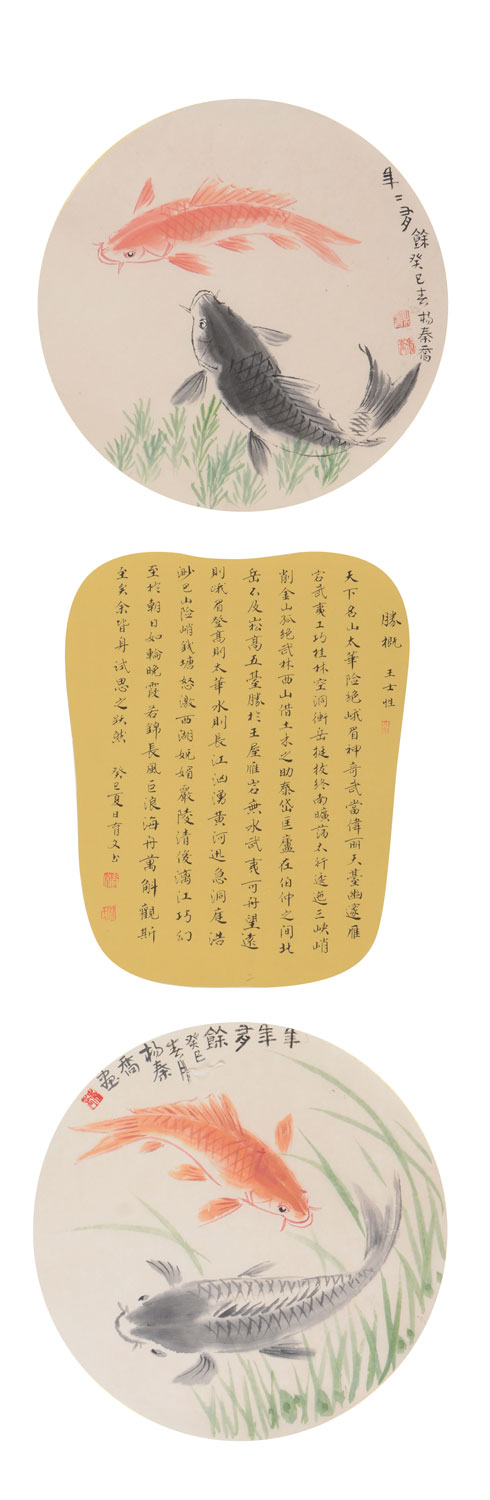 年〻多餘癸巳春杨秦喬
勝概 王士性
天下名山太華险绝峨眉神奇武當偉丽天臺幽邃雁
宕武夷工巧桂林空洞衡岳挺拔终南曠荡太行逶迤三峡峭
削金山孤绝武林西山借土木之助泰岱匡廬在伯仲之间北
岳不及嵩高五臺勝於王屋雁宕無水武夷可舟望遠
則峨眉登高則太華水則長江汹湧黄河迅急洞庭浩
渺巴山险峭錢塘怒激西湖妩媚嚴陵清俊漓江巧幻
至於朝日如輪晚霞若錦長風巨浪海舟萬斛觀斯
至矣余皆身试思之跃然 癸巳夏日育文书
年年多餘
癸巳
春月
杨秦
喬畫